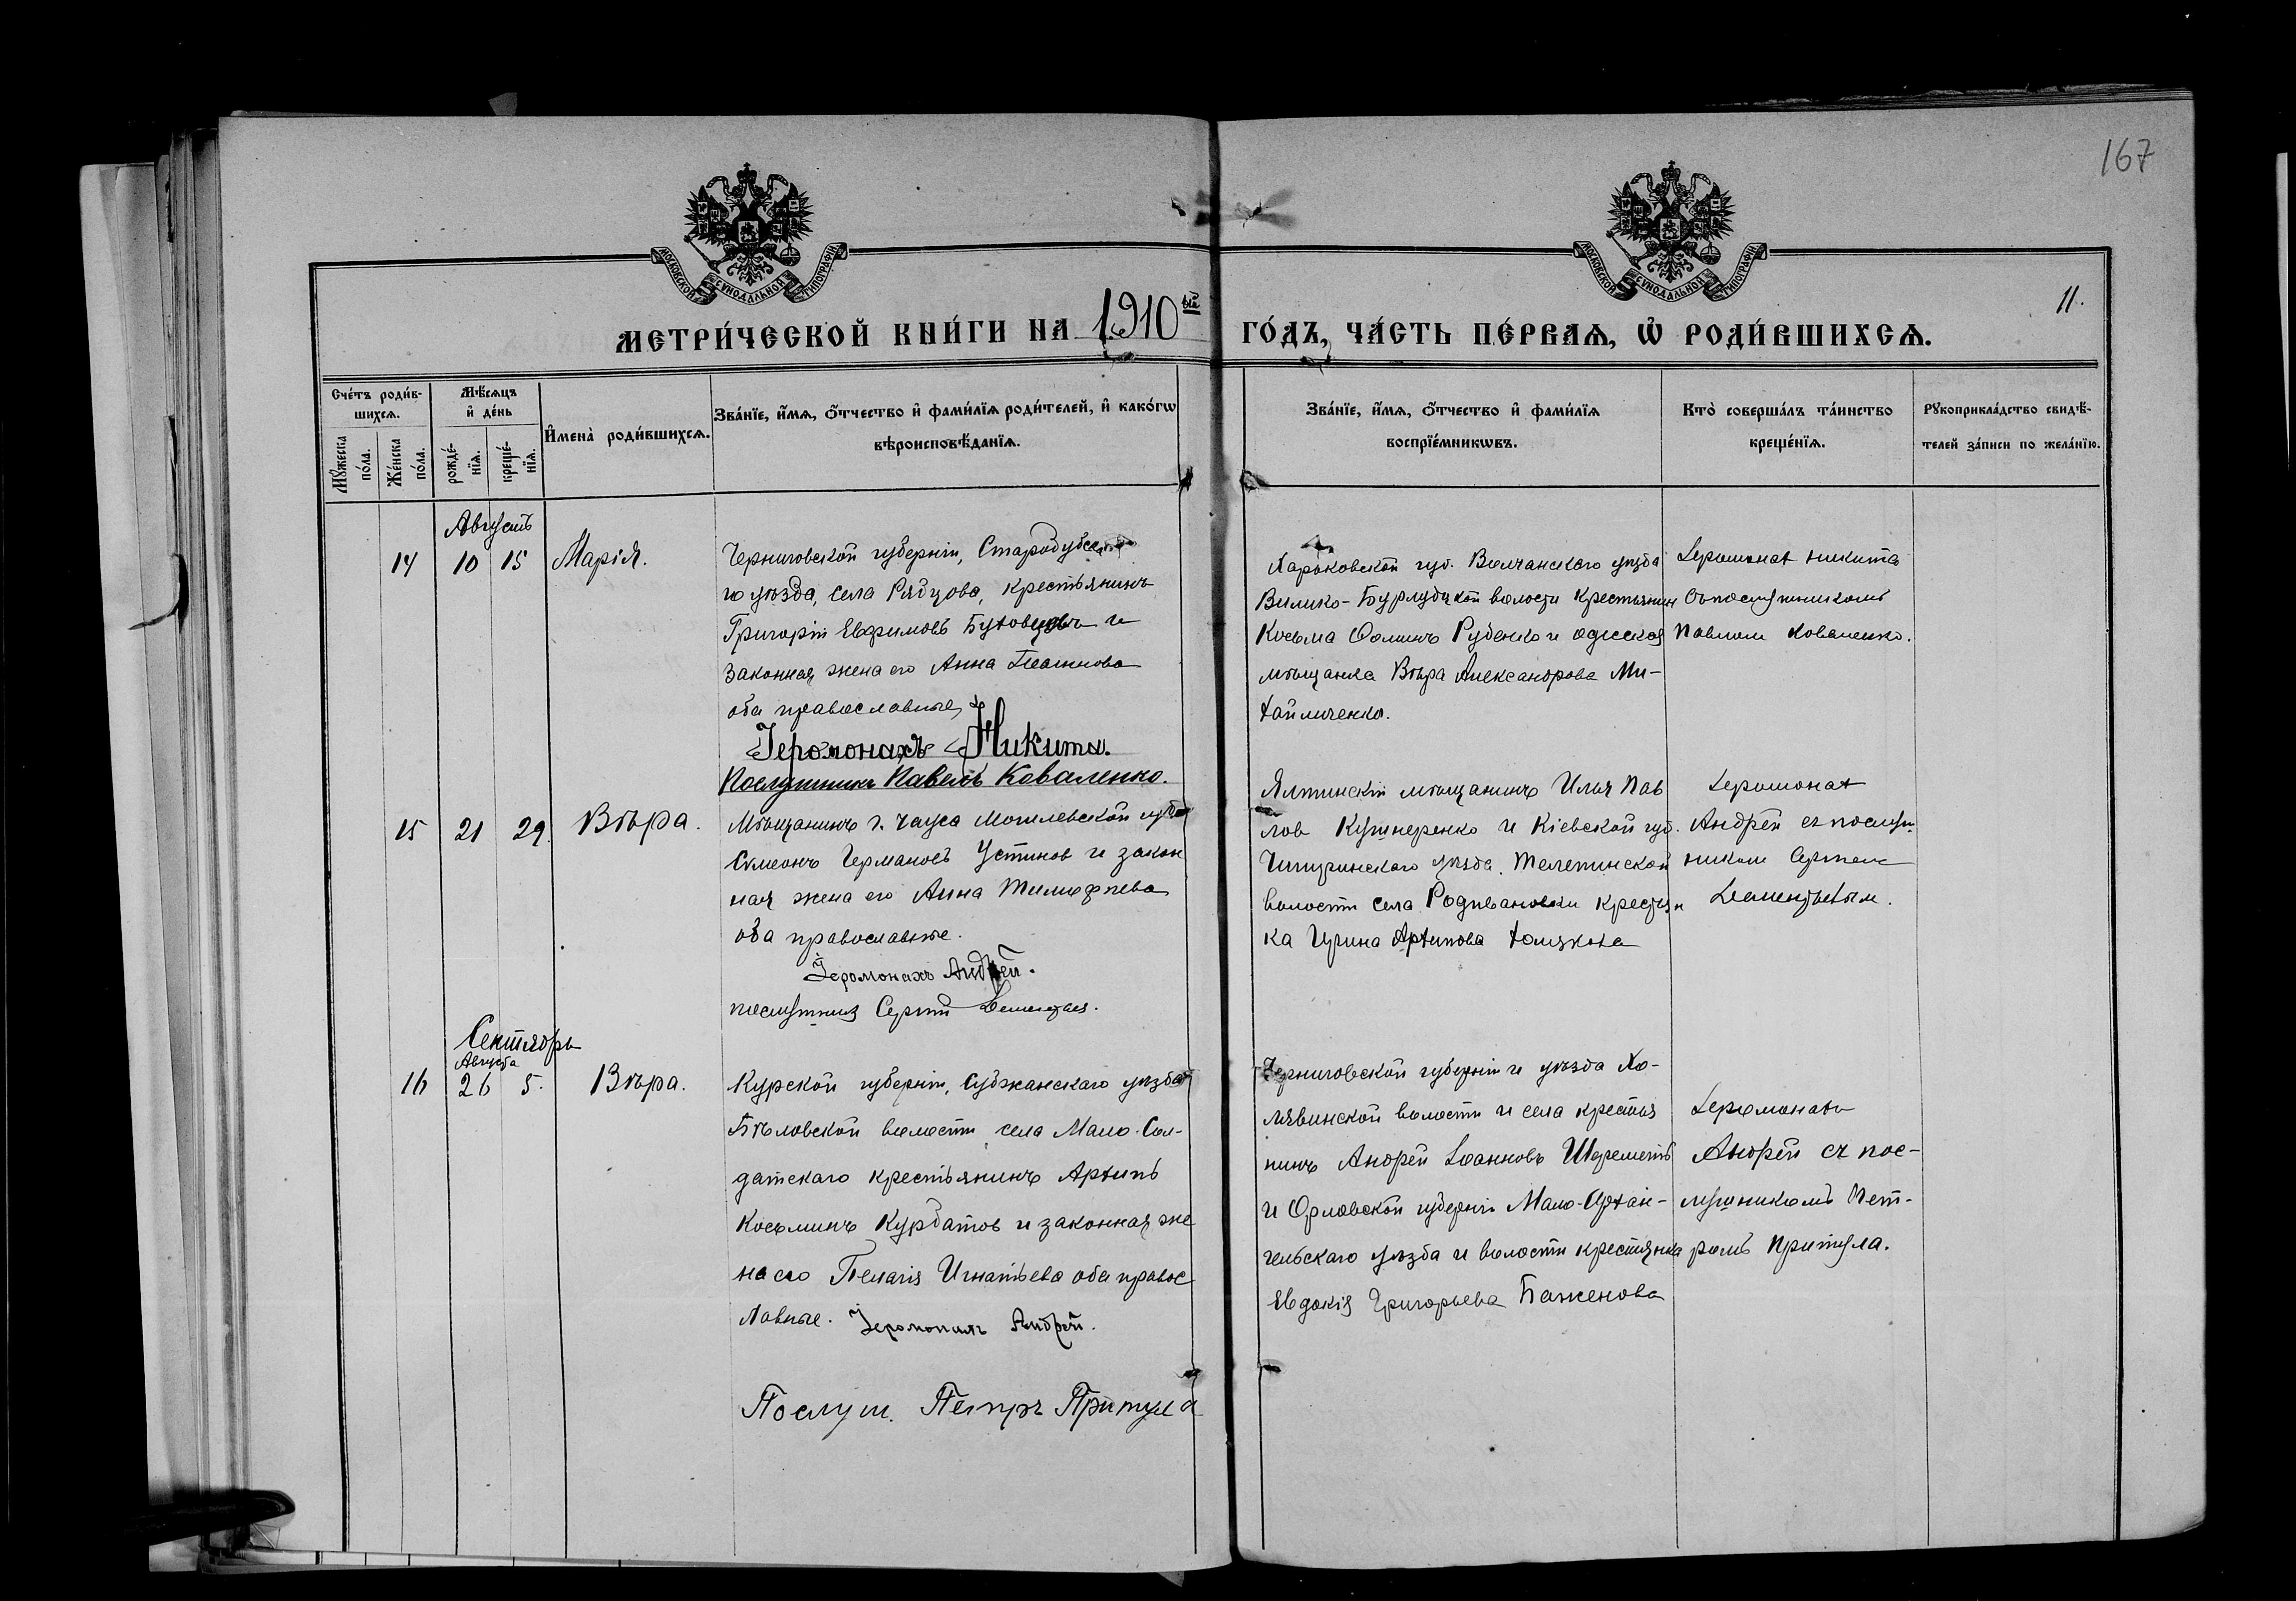 167
МОСКОВСКОЙ СѴНОДАЛЬНОЙ ТИПОГРАФІИ
МОСКОВСКОЙ СѴНОДАЛЬНОЙ ТИПОГРАФІИ
11.
МЕТРИ́ЧЕСКОЙ КНИ́ГИ НА 1910ый ГО́ДЪ, ЧА́СТЬ ПЕ́РВАѦ, Ѡ҆ РОДИ́ВШИХСѦ.
Сче́тъ роди́в-
шихсѧ.
Мѹ́жеска
по́ла.
Же́нска
по́ла.
Мѣ́сѧцъ
и҆ де́нь
рожде́-
нїѧ.
креще́-
нїѧ.
И҆мена̀ роди́вшихсѧ.
Зва́нїе, и҆́мѧ, ѻ҆́тчество и҆ фами́лїѧ роди́телей, и҆ како́гѡ
вѣроисповѣ́данїѧ.
Зва́нїе, и҆́мѧ, ѻ҆́тчество и҆ фами́лїѧ
воспрїе́мникѡвъ.
Кто̀ соверша́лъ та́инство
креще́нїѧ.
Рꙋкоприкла́дство свидѣ́-
телей за́писи по жела́нїю.
Августъ
14 10 15 Марія.
Черниговской губерніи, Стародубска-
го уѣзда, села Рябцова, крестьянинъ
Григорій Евфимовъ и
законная жена его Анна
оба православные
Іеромонахъ Никита.
Послушникъ Павелъ Коваленко.
Харьковской губ. Волчанскаго уѣзда
Велико-Бурлуцкой волости крестьянин
Косьма Ѳоминъ Рубенко и одесская
мѣщанка Вѣра Александрова Ми-
хайличенко.
Іеромонах Никита
съ послушникомъ
Павлом Коваленко.
15 21 29. Вѣра.
Мѣщанинъ г. Чауса Могилевской губ
Симеонъ Германовъ Устинов и закон
ная жена его Анна Тимофеева
оба православные.
Іеромонахъ Андрей.
послушник Сергий Дементьев.
Ялтинскій мѣщанинъ Илья Пав
лов Кушнеренко и Кіевской губ.
Чигиринскаго уѣзда. Телепинской
волости села Радивановки крестьян
ка Ирина Архипова
Іеромонах
Андрей съ послуш
ником Сергием
Дементьевым.
Сентябрь
Августа
16 26 5. Вѣра.
Курской губерніи, Суджанскаго уѣзда
Бѣловской волости села Мало-Сол-
датскаго крестьянинъ Архипъ
Косьминъ Курбатов и законная же
на его Пелагія Игнатьева оба правос
лавные. Іеромонахъ Андрей.
Послуш. Петръ Притула
Черниговской губерніи и уѣзда Хо-
лявинской волости и села крестья
нинъ Андрей Іоанновъ Шереметъ
и Орловской губерніи Мало-Архан-
гельскаго уѣзда и волости крестьянка
Евдокія Григорьева Баженова
Іеромонахъ
Андрей съ пос-
лушникомъ Пет-
ромъ Притула.